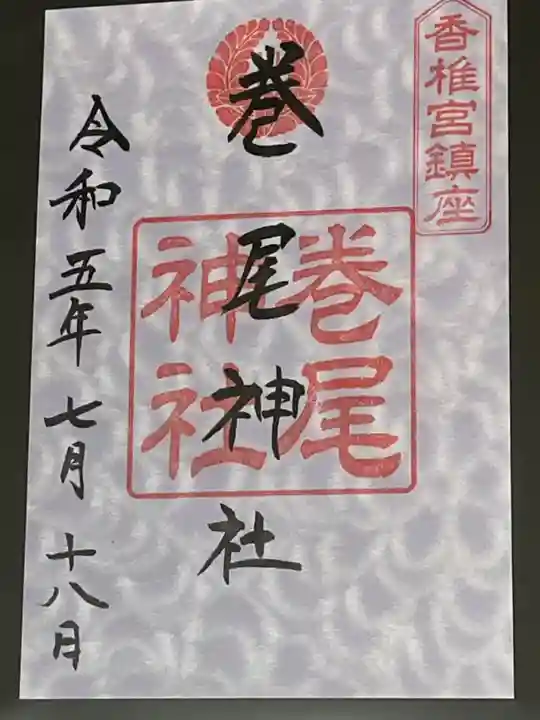 香椎宮鎮座
巻尾神社
巻尾
神社
令和五年七月十八日